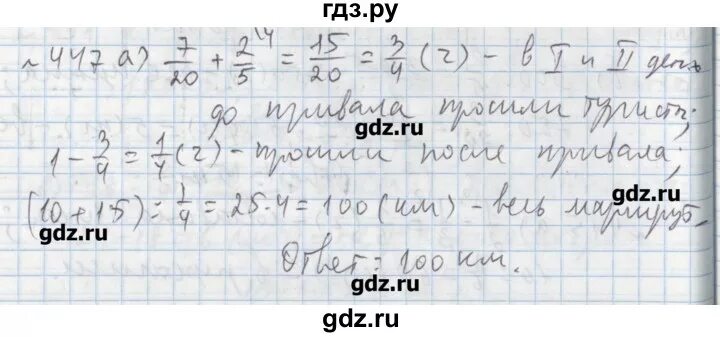 гдз.ру
№ 447 а) 7/20 + 2/5 \4 = 15/20 = 3/4 (ч) - в I и II день
до привала прошли туристы;
gdz.ru
gdz.ru
1 - 3/4 = 1/4 (ч) - прошли после привала;
gdz.ru
(10 + 15) : 1/4 = 25 · 4 = 100 (км) - весь маршрут.
gdz.ru
Ответ: 100 км.
gdz.ru
gdz.ru